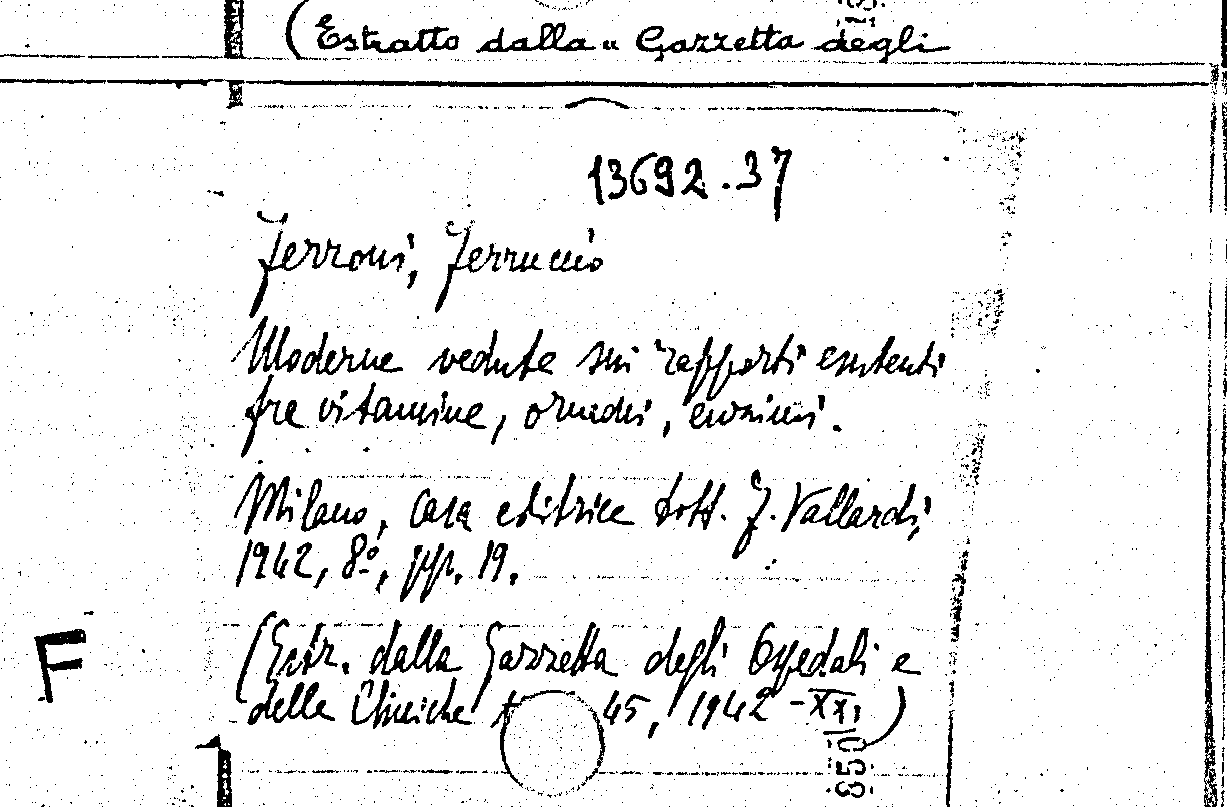 (Estratto dalla « Gazzetta degli
13692.37
Ferroni, Ferruccio
Moderne vedute sui rapporti esistenti
fra vitamine, ormoni, enzimi.
Milano, Casa editrice dott. F. Vallardi,
1942, 8º, pp. 19.
(Estr. dalla Gazzetta degli Ospedali e
delle Cliniche 45, 1942-XXI)
F
850